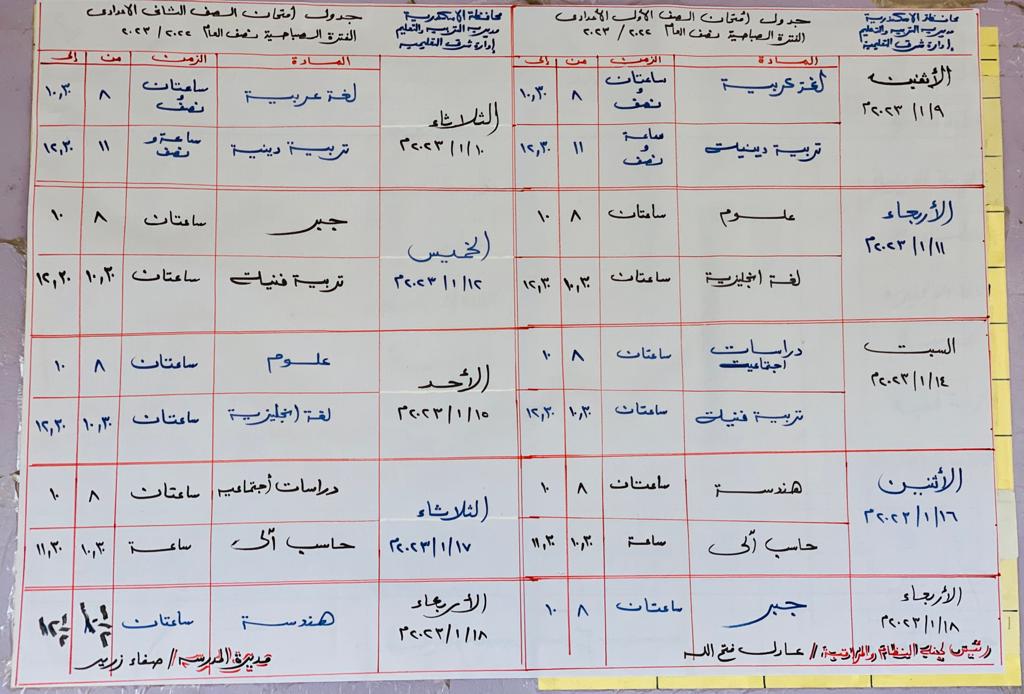 محافظة الاسكندرية
مديرية التربية والتعليم
إدارة شرق التعليمية
جدول أمتحان الصف الأول الأعدادى
الفترة الصباحية نصف العام ٢٠٢٢ / ٢٠٢٣
المادة الزمن من إلى
الأثنين
٢٠٢٣/١/٩م
لغة عربية ساعتان و نصف ٨ ١٠,٣٠
تربية دينية ساعة و نصف ١١ ١٢,٣٠
الأربعاء
٢٠٢٣/١/١١م
علوم ساعتان ٨ ١٠
لغة انجليزية ساعتان ١٠,٣٠ ١٢,٣٠
السبت
٢٠٢٣/١/١٤م
دراسات اجتماعية ساعتان ٨ ١٠
تربية فنية ساعتان ١٠,٣٠ ١٢,٣٠
الأثنين
٢٠٢٣/١/١٦م
هندسة ساعتان ٨ ١٠
حاسب آلى ساعة ١٠,٣٠ ١١,٣٠
الأربعاء
٢٠٢٣/١/١٨م
جبر ساعتان ٨ ١٠
رئيس لجنة النظام والمراقبة // عادل فتح الله
محافظة الاسكندرية
مديرية التربية والتعليم
إدارة شرق التعليمية
جدول أمتحان الصف الثانى الأعدادى
الفترة الصباحية نصف العام ٢٠٢٢ / ٢٠٢٣
المادة الزمن من إلى
الثلاثاء
٢٠٢٣/١/١٠م
لغة عربية ساعتان و نصف ٨ ١٠,٣٠
تربية دينية ساعة و نصف ١١ ١٢,٣٠
الخميس
٢٠٢٣/١/١٢م
جبر ساعتان ٨ ١٠
تربية فنية ساعتان ١٠,٣٠ ١٢,٣٠
الأحد
٢٠٢٣/١/١٥م
علوم ساعتان ٨ ١٠
لغة انجليزية ساعتان ١٠,٣٠ ١٢,٣٠
الثلاثاء
٢٠٢٣/١/١٧م
دراسات أجتماعيه ساعتان ٨ ١٠
حاسب آلى ساعة ١٠,٣٠ ١١,٣٠
الأربعاء
٢٠٢٣/١/١٨م
هندسة ساعتان
مديرة المدرسه // صفاء